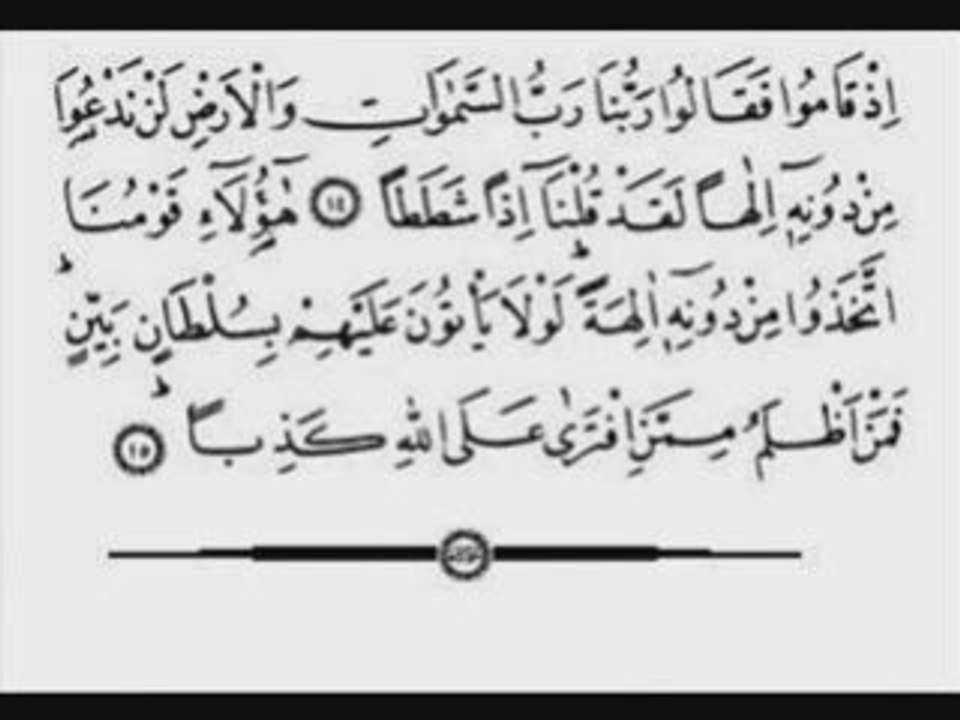 اِذْ قَامُوا فَقَالُوا رَبُّنَا رَبُّ السَّمٰوَاتِ وَالْاَرْضِ لَنْ نَدْعُوَا
مِنْ دُونِه۪ٓ اِلٰهاً لَقَدْ قُلْنَٓا اِذاً شَطَطاً ﴿١٤﴾ هٰٓؤُ۬لَٓاءِ قَوْمُنَا
اتَّخَذُوا مِنْ دُونِه۪ٓ اٰلِهَةًۜ لَوْلَا يَأْتُونَ عَلَيْهِمْ بِسُلْطَانٍ بَيِّنٍۜ
فَمَنْ اَظْلَمُ مِمَّنِ افْتَرٰى عَلَى اللّٰهِ كَذِباًۜ ﴿١٥﴾